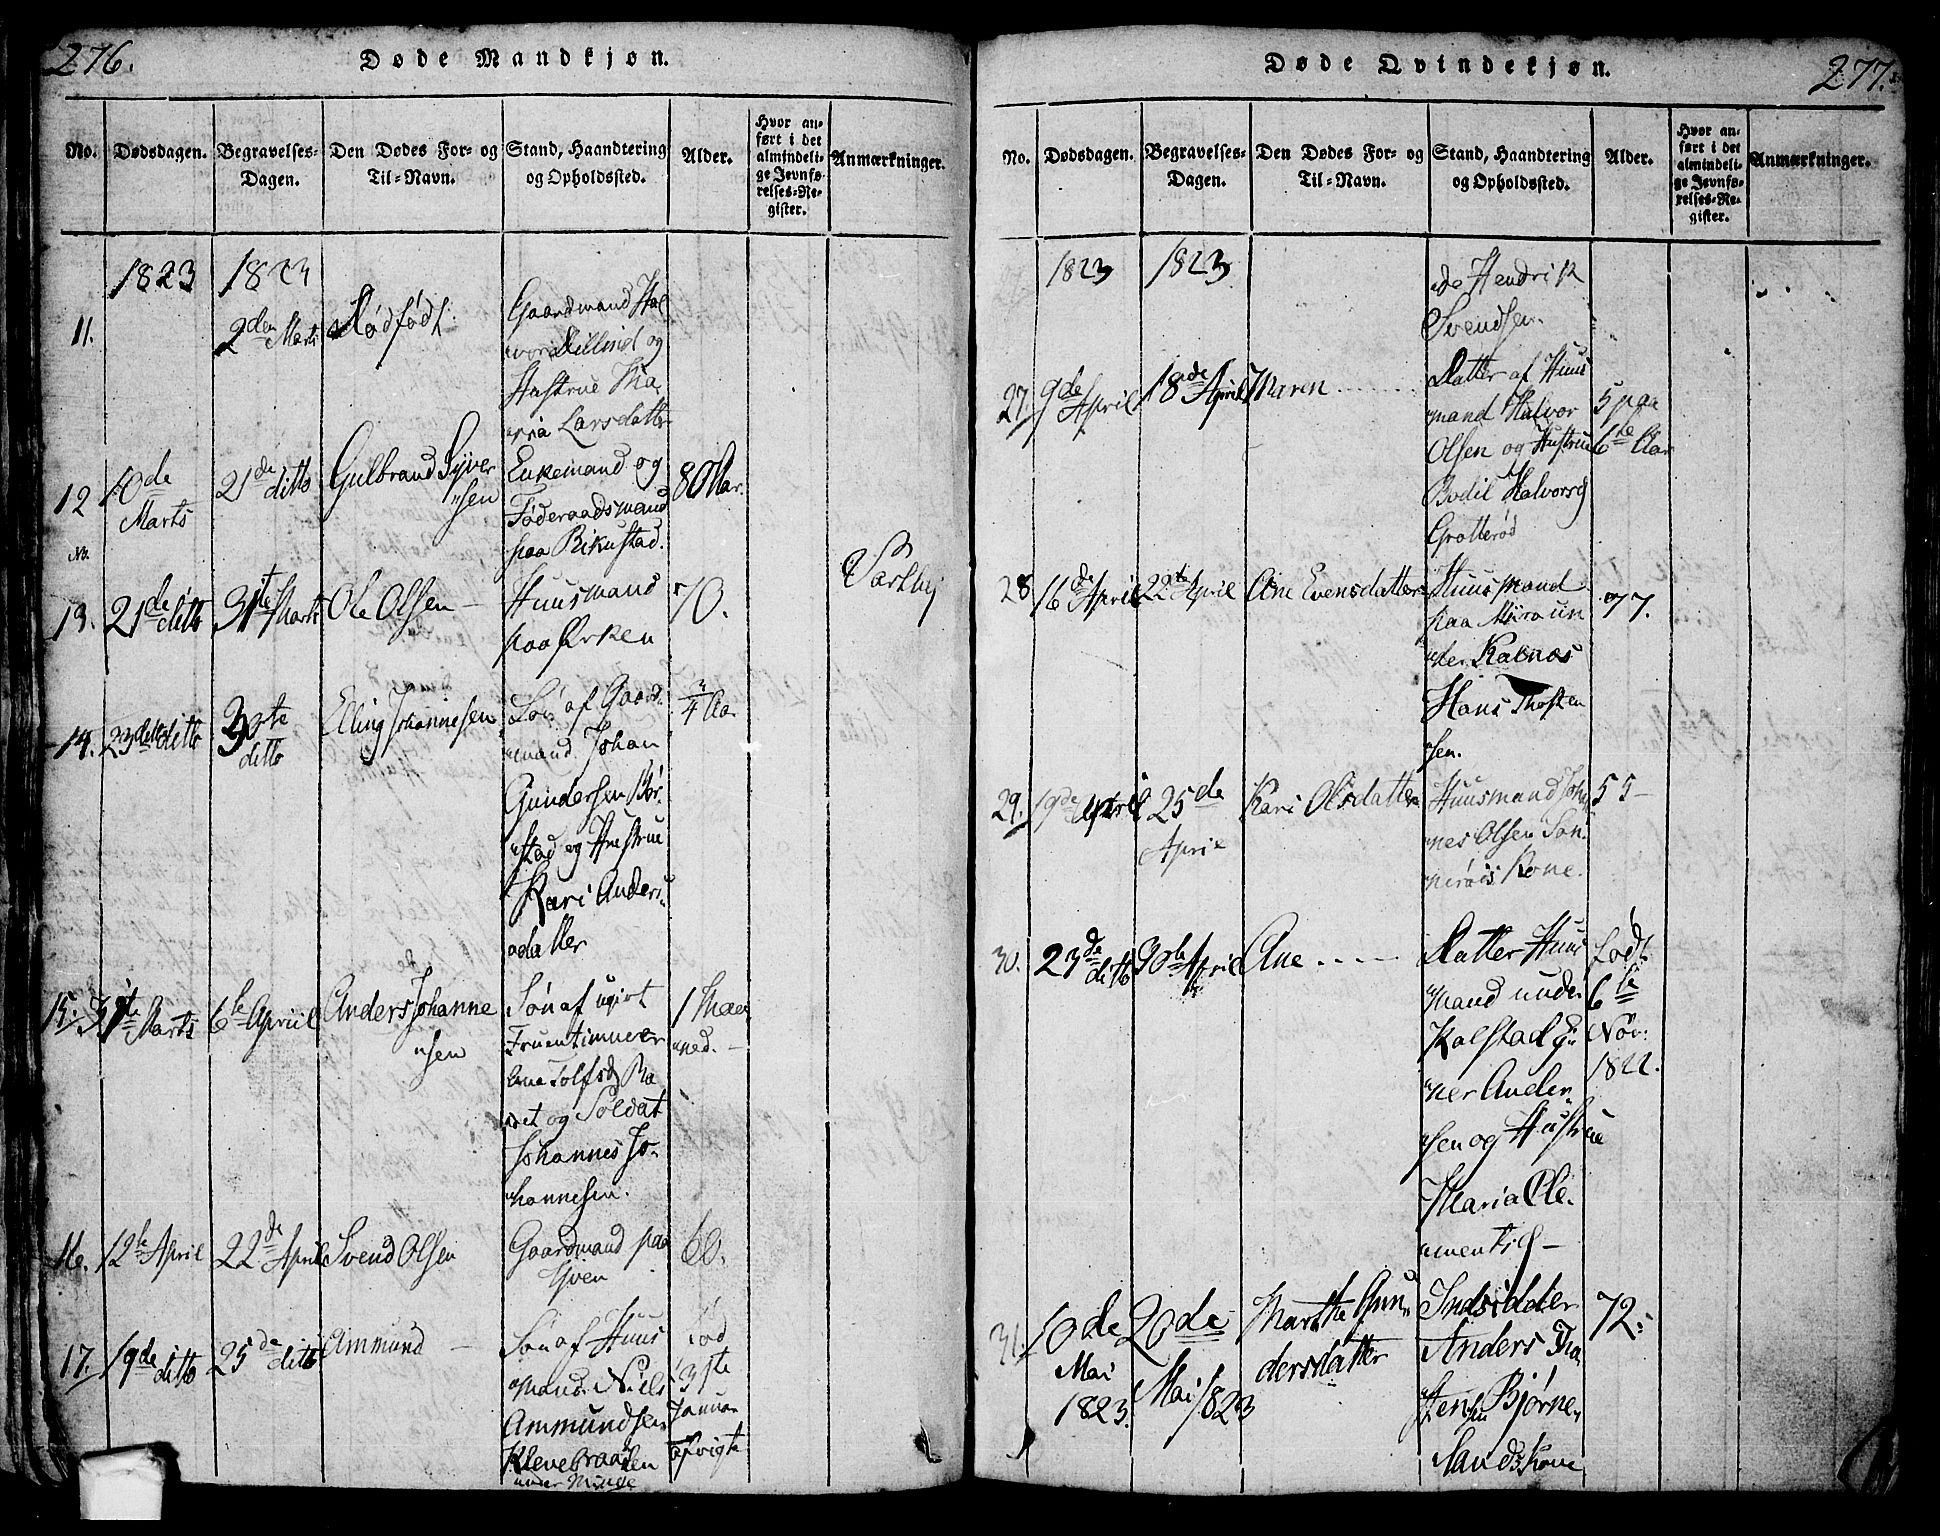 276.
Døde Mandkjøn.
No.
Dødsdagen.
Begravelses-
Dagen.
Den Dødes For- og
Til-Navn.
Stand, Haandtering
og Opholdssted.
Alder.
Hvor an-
ført i det
almindeli-
ge Jevnfø-
relses-Re-
gister.
Anmærkninger.
1823
1823
11.
2den Marts
Dødfødt.
Gaardmand Hal
vor
og
Hustrue Ma
ria Larsdatter
12
10de
Marts
21de ditto
Gulbrand Syver
sen
Enkemand og
Føderaadsmand
paa Rikustad.
80 Aar.
13.
21de ditto
31te Marts
Ole Olsen -
Huusmand
paa Ørken
70.
14.
23de ditto
30te
ditto
Elling Johannesen
Søn af Gaard
mand Johan
Gundersen Bør-
stad og Hustrue
Kari Anders
datter
3/4 Aar
15.
31te Marts
6te Apriil
Anders Johanne
sen
Søn af ugivt
Fruentimmer
Ane Tolfsd
og Soldat
Johannes Jo-
hannesen.
1 Maa
ned. -
16.
12te April
22de April
Svend Olsen
Gaardmand paa
60.
17.
19de ditto
25de ditto
Ammund -
Søn af Huus
mand Niels
Ammundsen
Klevebraaten
under Minde
fød
31te
Januar
afvigte
277.
Døde Qvindekjøn.
No.
Dødsdagen.
Begravelses-
Dagen.
Den Dødes For- og
Til-Navn.
Stand, Haandtering
og Opholdssted.
Alder.
Hvor an-
ført i det
almindeli-
ge Jevnfø-
relses-Re-
gister.
Anmærkninger.
1823
1823
de Hendrik
Svendsen.
27.
9de April
18de April
Maren
Datter af Huus
mand Halvor
Olsen og Hustrue
Bodil Halvorsd
Grotterød
5 paa
6te Aar
28
16de April
22de April
Ane Evensdatter
Huusmand
paa Myra un
der Kalnæs
Hans Thosten
sen.
77.
29.
19de April
25de
April
Kari Olsdatter
Huusmand Johan
nes Olsen Søn
derøds Kone.
55 -
30.
23de ditto
30te April
Ane
Datter Huus
mand under
Kalstad Ei
ner Ander
sen og Hustrue
Maria Cle-
mentsd -
født
6te
Nov:
1822.
31.
10de
Mai
1823.
20de
Mai 1823
Marthe Gun
dersdatter
Indsidder
Anders Tho
stensen Bjørne
Sands Kone
72.